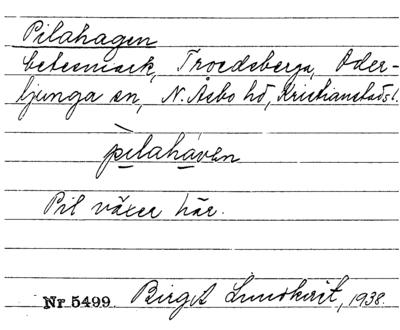 Pilahagen
betesmark, Troedsberga, Oder-
ljunga sn, N. Åsbo hd, Kristianstads l.
pilahaven
Pil växer här.
Nr 5499. Birgit Lundkvist, 1938.